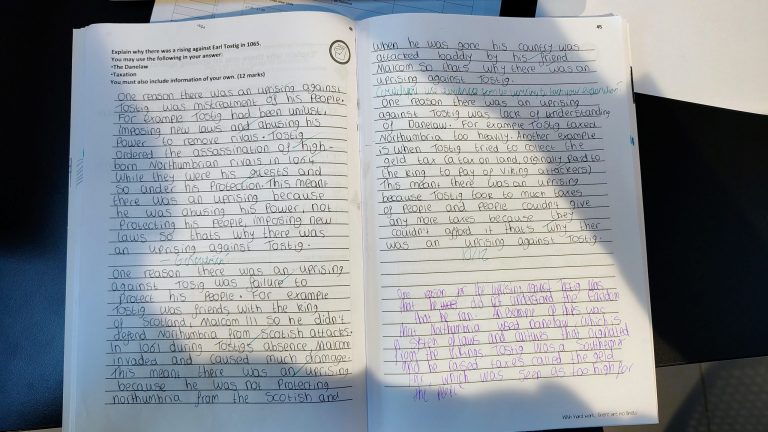 Explain why there was a rising against Earl Tostig in 1065.
You may use the following in your answer:
•The Danelaw
•Taxation
You must also include information of your own. (12 marks)
One reason there was an uprising against
Tostig was mistreatment of his People.
For example Tostig had been unjust,
imposing new laws and abusing his
Power to remove rivals. Tostig
ordered the assassination of high-
born Northumbrian rivals in 1064
while they were his guests and
so under his Protection. This meant
there was an uprising because
he was abusing his Power, not
Protecting his People, imposing new
laws so thats why there was
an uprising against Tostig.
one reason there was an uprising
against Tosig was failure to
Protect his People. For example
Tostig was friends with the king
of Scotland, Malcom III so he didn't
defend Northumbria from Scotish attacks.
In 1061 during Tostig's absence Malcom
invaded and caused much damage.
This meant there was an uprising
because he was not Protecting
northumbria from the Scotish and
45
when he was gone his country was
attacked baddly by his friend
Malcom so thats why there was an
uprising against Tostig.
One reason there was an uprising
against Tostig was lack of understanding
of Danelaw. For example Tostig taxed
Northumbria too heavily. Another example
is when Tostig tried to collect the
geld tax (a tax on land, originally Paid to
the king to Pay of viking attackers)
This meant there was an uprising
because Tostig took to much taxes
of People and People couldn't give
any more taxes because they
couldn't afford it thats why ther
was an uprising against Tostig.
10/12
One reason for the uprising against Tostig was
that he did not understand the Earldom
that he ran. An example of this was
that Northumbria used danelaw which is
a system of laws and customs that originated
from the Vikings. Tostig was a Southerner
and he raised taxes called the geld
which was seen as too high for
the
With hard work, there are no limits